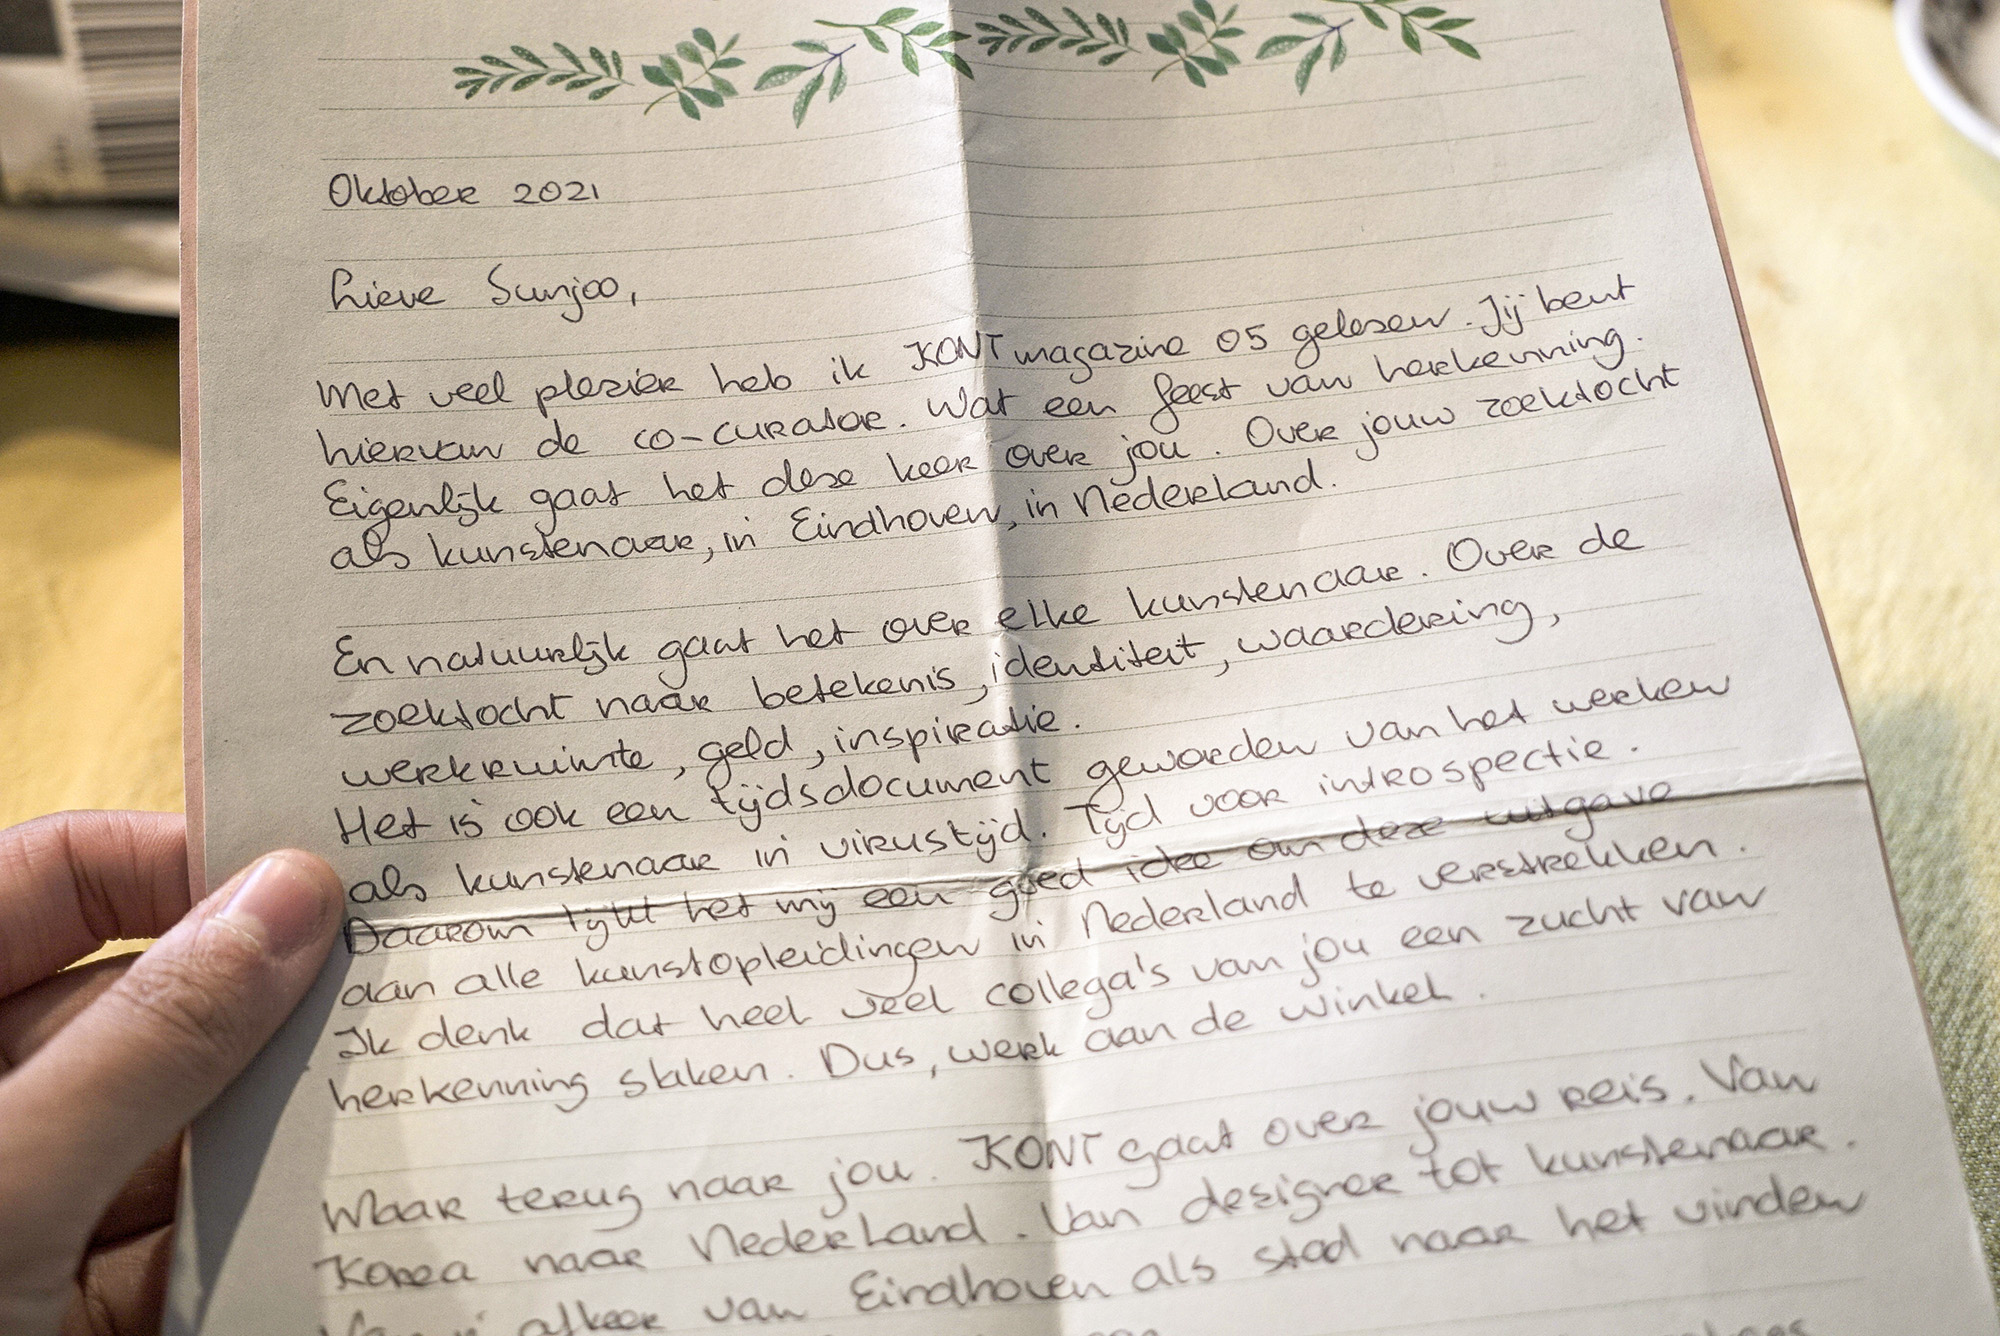 Oktober 2021
Lieve Sunjoo,
Met veel plezier heb ik KONT magazine 05 gelezen. Jij bent
hiervan de co-curator. Wat een feest van herkenning.
Eigenlijk gaat het deze keer over jou. Over jouw zoektocht
als kunstenaar, in Eindhoven, in Nederland.
En natuurlijk gaat het over elke kunstenaar. Over de
zoektocht naar betekenis, identiteit, waardering,
werkruimte, geld, inspiratie.
Het is ook een tijdsdocument geworden van het werken
als kunstenaar in virustijd. Tijd voor introspectie.
Daarom lijkt het mij een goed idee om deze uitgave
aan alle kunstopleidingen in Nederland te verstrekken.
Ik denk dat heel veel collega's van jou een zucht van
herkenning slaken. Dus, werk aan de winkel.
Maar terug naar jou. KONT gaat over jouw reis. Van
Korea naar Nederland. Van designer tot kunstenaar.
afkeer van Eindhoven als stad naar het vinden